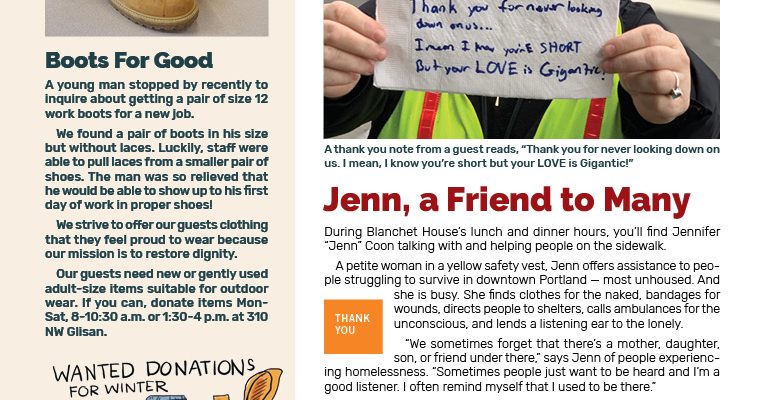 Boots For Good
A young man stopped by recently to
inquire about getting a pair of size 12
work boots for a new job.
We found a pair of boots in his size
but without laces. Luckily, staff were
able to pull laces from a smaller pair of
shoes. The man was so relieved that
he would be able to show up to his first
day of work in proper shoes!
We strive to offer our guests clothing
that they feel proud to wear because
our mission is to restore dignity.
Our guests need new or gently used
adult-size items suitable for outdoor
wear. If you can, donate items Mon-
Sat, 8-10:30 a.m. or 1:30-4 p.m. at 310
NW Glisan.
WANTED DONATIONS
FOR WINTER
Thank you for never looking
down on us...
I mean I know you're SHORT
But your LOVE is Gigantic!
A thank you note from a guest reads, “Thank you for never looking down on
us. I mean, I know you’re short but your LOVE is Gigantic!”
Jenn, a Friend to Many
During Blanchet House’s lunch and dinner hours, you’ll find Jennifer
“Jenn” Coon talking with and helping people on the sidewalk.
A petite woman in a yellow safety vest, Jenn offers assistance to peo-
ple struggling to survive in downtown Portland — most unhoused. And
she is busy. She finds clothes for the naked, bandages for
wounds, directs people to shelters, calls ambulances for the
unconscious, and lends a listening ear to the lonely.
THANK
YOU
“We sometimes forget that there’s a mother, daughter,
son, or friend under there,” says Jenn of people experienc-
ing homelessness. “Sometimes people just want to be heard and I’m a
good listener. I often remind myself that I used to be there.”